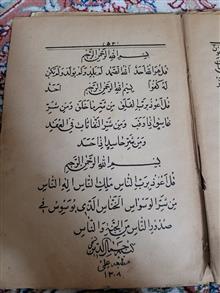 بسم الله الرحمن الرحيم
قل هو الله احد الله الصمد لم يلد ولم يولد ولم يكن
له كفوا احد بسم الله الرحمن الرحيم
قل اعوذ برب الفلق من شر ما خلق ومن شر
غاسق اذا وقب ومن شر النفاثات في العقد
ومن شر حاسد اذا حسد
بسم الله الرحمن الرحيم
قل اعوذ برب الناس ملك الناس اله الناس
من شر الوسواس الخناس الذي يوسوس في
صدور الناس من الجنة والناس